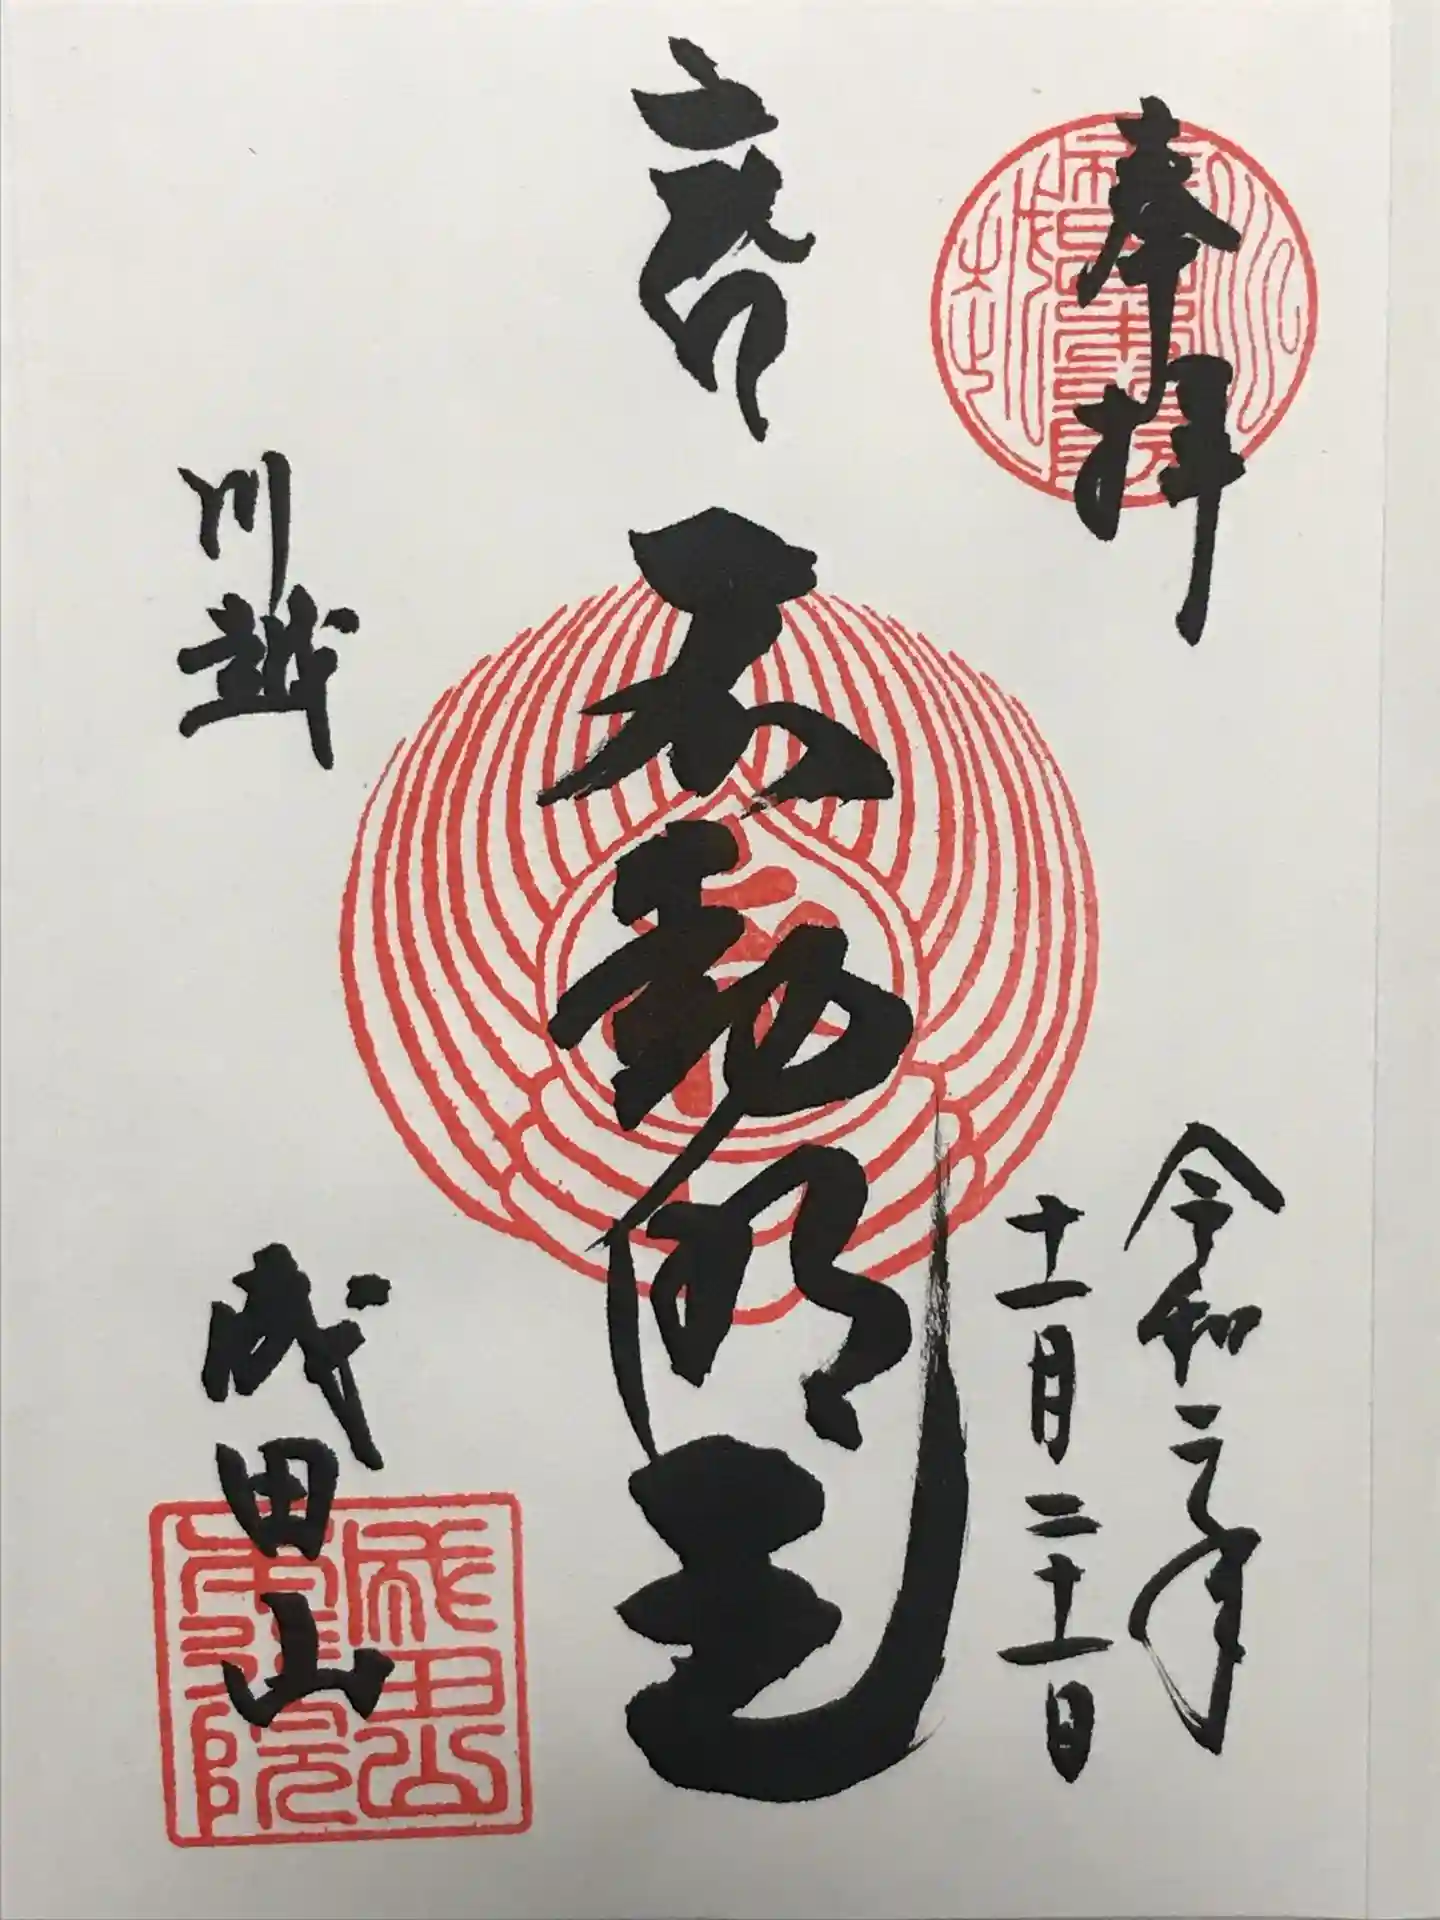 奉拝
令和二年
十一月二十一日
不動明王
川越
成田山
成田山
本行院